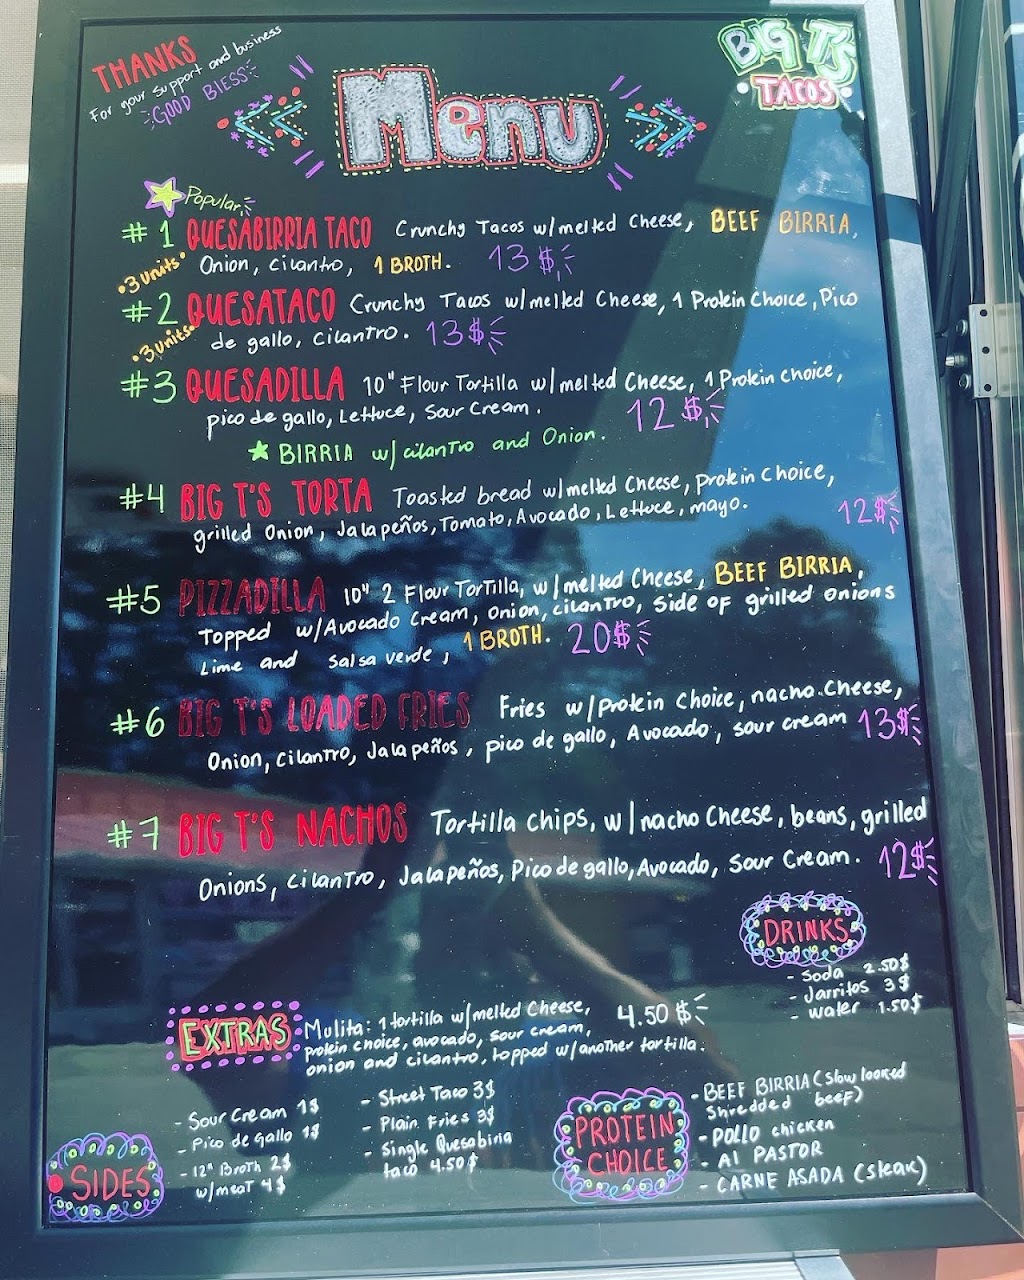 THANKS
For your support and business
GOOD BlESS
BIG T'S
TACOS
Menu
Popular
#1 QUESABIRRIA TACO Crunchy Tacos w/melted Cheese, BEEF BIRRIA,
•3 units• Onion, cilantro, 1 BROTH. 13$
#2 QUESATACO Crunchy Tacos w/melted Cheese, 1 Protein Choice, Pico
•3 units• de gallo, cilantro. 13$
#3 QUESADILLA 10" Flour Tortilla w/melted Cheese, 1 Protein choice,
pico de gallo, Lettuce, Sour Cream. 12$
★ BIRRIA w/cilantro and Onion.
#4 BIG T'S TORTA Toasted bread w/melted Cheese, protein Choice,
grilled Onion, Jalapeños, Tomato, Avocado, Lettuce, mayo. 12$
#5 PIZZADILLA 10" 2 Flour Tortilla, w/melted Cheese, BEEF BIRRIA,
Topped w/Avocado Cream, Onion, cilantro, Side of grilled onions
Lime and salsa verde, 1 BROTH. 20$
#6 BIG T'S LOADED FRIES Fries w/Protein Choice, nacho Cheese,
Onion, cilantro, Jalapeños, pico de gallo, Avocado, sour cream 13$
#7 BIG T'S NACHOS Tortilla chips, w/nacho Cheese, beans, grilled
Onions, cilantro, Jalapeños, Pico de gallo, Avocado, Sour Cream. 12$
DRINKS
- Soda 2.50$
- Jarritos 3$
- water 1.50$
EXTRAS
Mulita: 1 tortilla w/melted Cheese, 4.50$
protein choice, avocado, sour cream,
onion and cilantro, topped w/another tortilla.
SIDES
- Sour Cream 1$
- Pico de Gallo 1$
- 12" Broth 2$
w/meat 4$
- Street Taco 3$
- Plain Fries 3$
- Single Quesabirria
taco 4.50$
PROTEIN
CHOICE
- BEEF BIRRIA (Slow looked
Shredded beef)
- POLLO chicken
- Al PASTOR
- CARNE ASADA (steak)